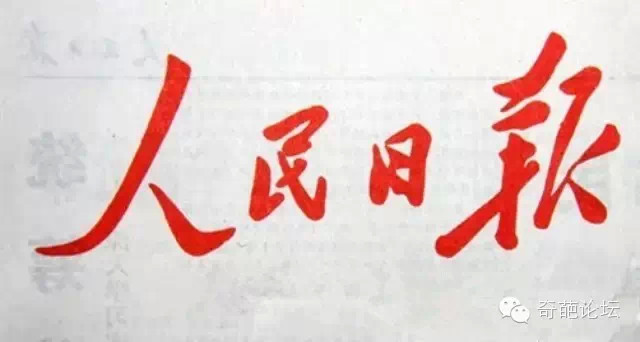 人民日報
奇葩论坛